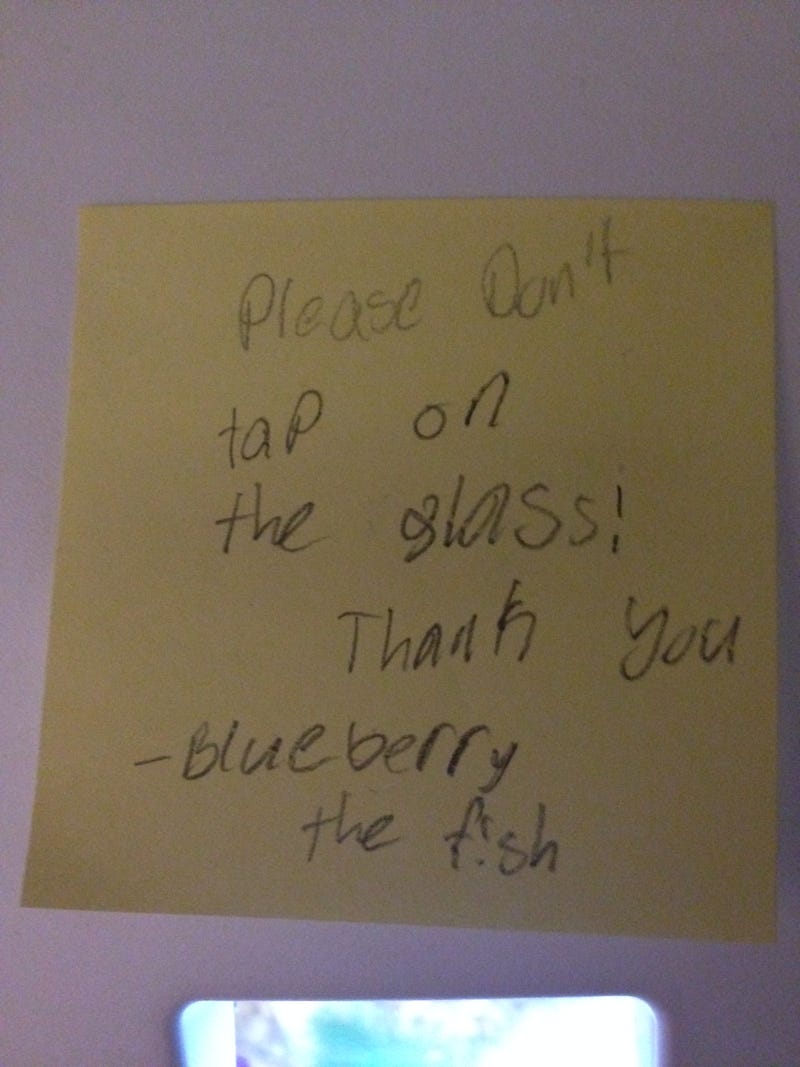 Please Don't
tap on
the glass!
Thank you
-Blueberry
the fish